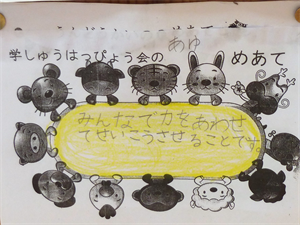 あゆ
学しゅうはっぴょう会の めあて
みんなで力をあわせ
てせいこうさせることです。